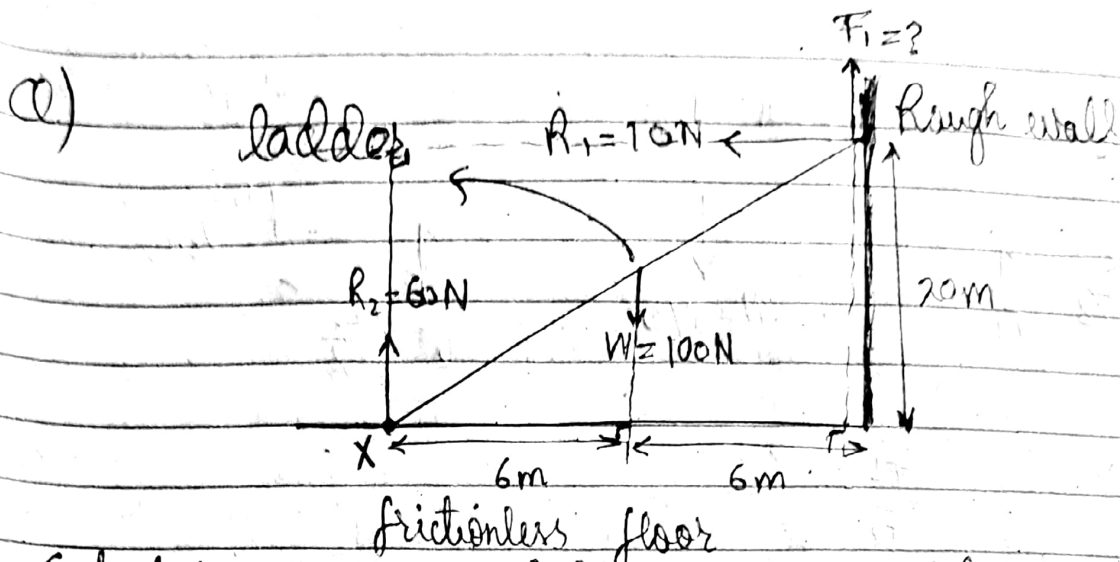 F₁ = ?
Q)
ladder
R₁ = 10N
Rough wall
R₂ = 60N
20m
W = 100N
X
6m
6m
frictionless floor